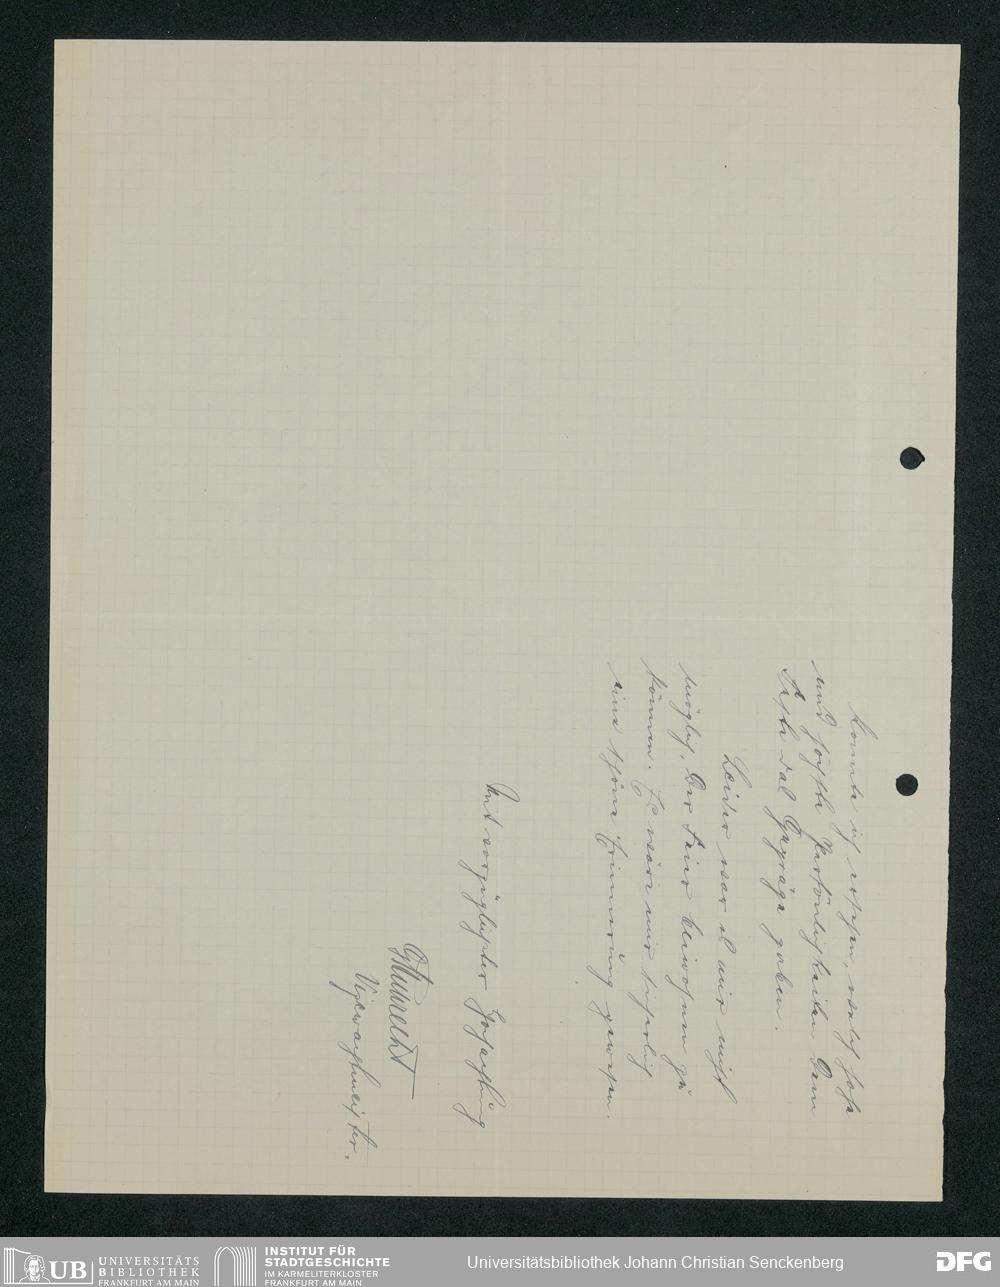 konnte ich ersehen, welch hohe
und höchste Persönlichkeiten dem
Feste das Gepräge gaben.
Leider war es mir nicht
möglich, der Feier beiwohnen zu
können. Es wäre mir sicherlich
eine schöne Erinnerung gewesen.
Mit vorzüglichster Hochachtung
Vizewachtmeister.
UB UNIVERSITÄTS
BIBLIOTHEK
FRANKFURT AM MAIN
INSTITUT FÜR
STADTGESCHICHTE
IM KARMELITERKLOSTER
FRANKFURT AM MAIN
Universitätsbibliothek Johann Christian Senckenberg
DFG